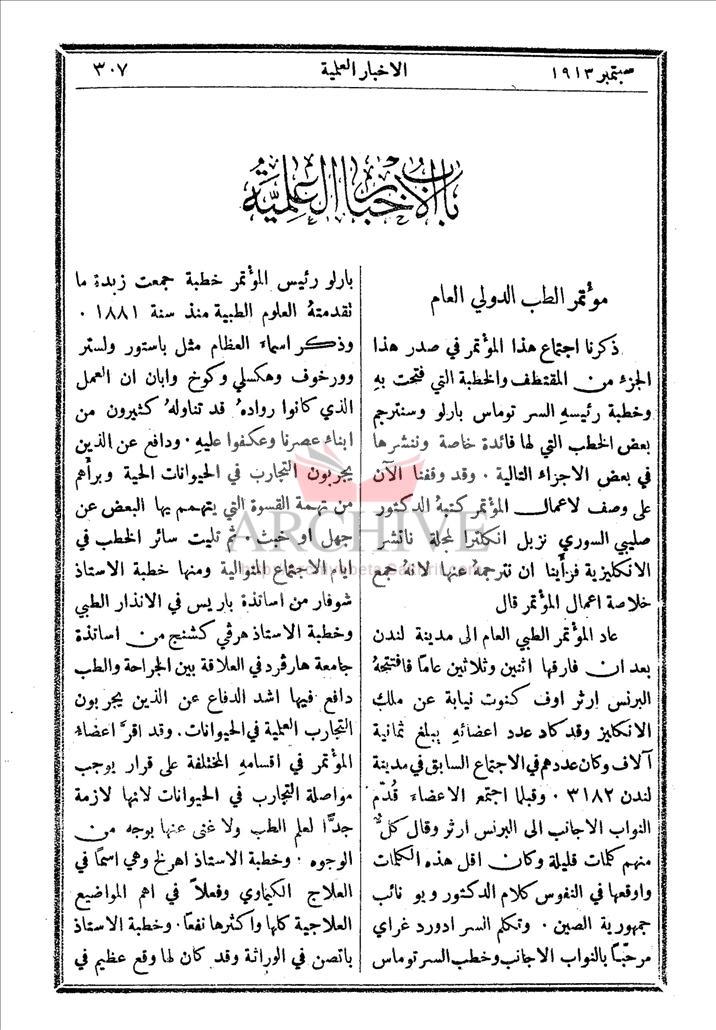 سبتمبر ١٩١٣
الاخبار العلمية
٣٠٧
باب الاخبار العلمية
مؤتمر الطب الدولي العام
ذكرنا اجتماع هذا المؤتمر في صدر هذا
الجزء من المقتطف والخطبة التي فتحت بهِ
وخطبة رئيسهِ السر توماس بارلو وسنترجم
بعض الخطب التي لها فائدة خاصة وننشرها
في بعض الاجزاء التالية ٠ وقد وقفنا الآن
على وصف لاعمال المؤتمر كتبهُ الدكتور
صليبي السوري نزيل انكلترا لمجلة ناتشر
الانكليزية فرأينا ان نترجمهُ عنها لانهُ جمع
خلاصة اعمال المؤتمر قال
عاد المؤتمر الطبي العام الى مدينة لندن
بعد ان فارقها اثنتين وثلاثين عاماً فافتتحهُ
البرنس ارثر اوف كنوت نيابة عن ملك
الانكليز وقد كاد عدد اعضائهِ يبلغ ثمانية
آلاف وكان عددهم في الاجتماع السابق في مدينة
لندن ٣١٨٢ ٠ وقبلما اجتمع الاعضاء قُدّم
النواب الاجانب الى البرنس ارثر وقال كلٌّ
منهم كلمات قليلة وكان اقل هذه الكلمات
واوقعها في النفوس كلام الدكتور وبو نائب
جمهورية الصين ٠ وتكلم السر ادورد غراي
مرحّباً بالنواب الاجانب وخطب السر توماس
بارلو رئيس المؤتمر خطبة جمعت زبدة ما
تقدمتهُ العلوم الطبية منذ سنة ١٨٨١ ٠
وذكر اسماء العظام مثل باستور ولستر
وورخوف وهكسلي وكوخ وابان ان العمل
الذي كانوا روادهُ قد تناولهُ كثيرون من
ابناء عصرنا وعكفوا عليهِ ٠ ودافع عن الذين
يجربون التجارب في الحيوانات الحية وبرأهم
من تهمة القسوة التي يتهمهم بها البعض عن
جهل او خبث ٠ ثم تليت سائر الخطب في
ايام الاجتماع المتوالية ومنها خطبة الاستاذ
شوفار من اساتذة باريس في الانذار الطبي
وخطبة الاستاذ هرڤي كشنج من اساتذة
جامعة هارڤرد في العلاقة بين الجراحة والطب
دافع فيها اشد الدفاع عن الذين يجربون
التجارب العلمية في الحيوانات. وقد اقرَّ اعضاء
المؤتمر في اقسامهِ المختلفة على قرار يوجب
مواصلة التجارب في الحيوانات لانها لازمة
جدًّا لعلم الطب ولا غنى عنها بوجه من
الوجوه ٠ وخطبة الاستاذ اهرلخ وهي اسماً في
العلاج الكيماوي وفعلاً في اهم المواضيع
العلاجية كلها واكثرها نفعاً ٠ وخطبة الاستاذ
باتصن في الوراثة وقد كان لها وقع عظيم في
ARCHIVE